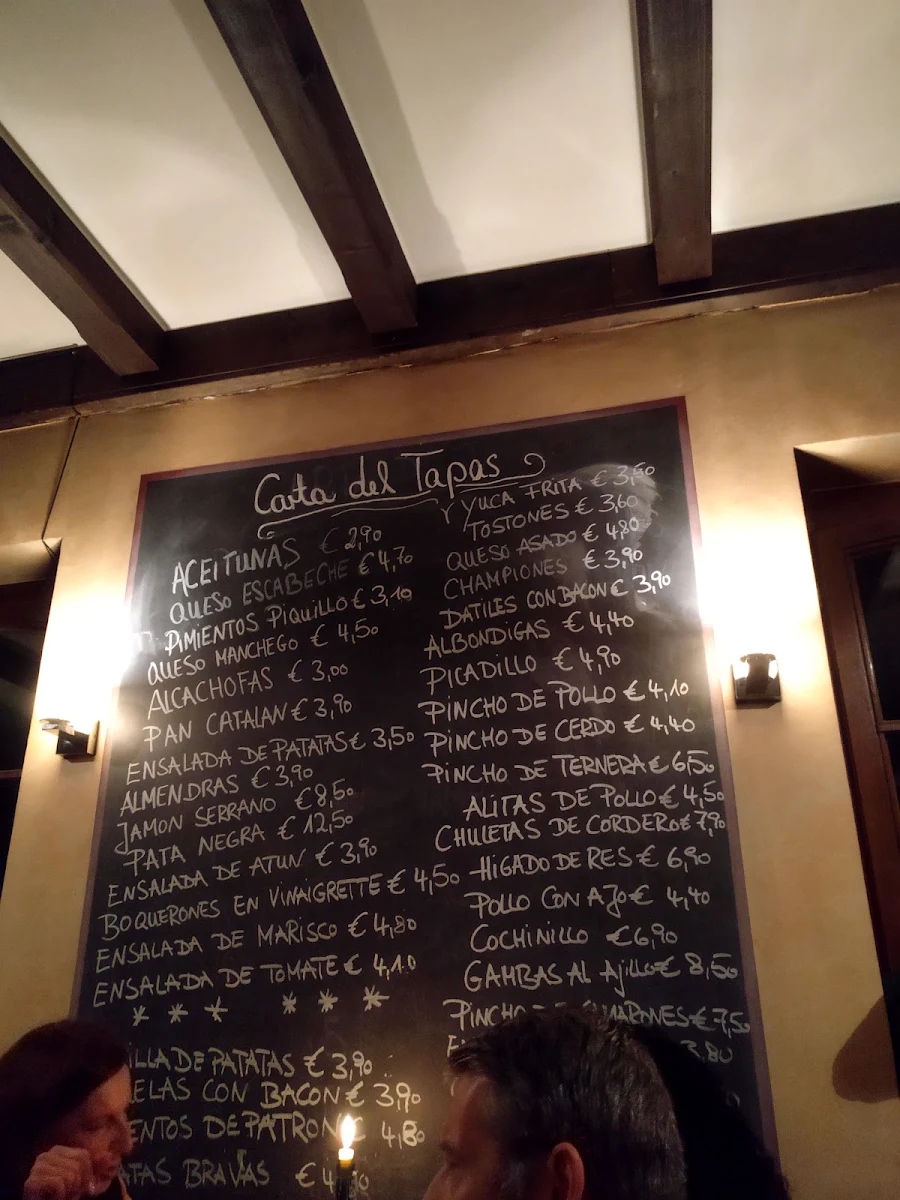 Carta del Tapas
ACEITUNAS € 2,90
QUESO ESCABECHE € 4,70
PIMIENTOS PIQUILLO € 3,10
QUESO MANCHEGO € 4,50
ALCACHOFAS € 3,00
PAN CATALAN € 3,90
ENSALADA DE PATATAS € 3,50
ALMENDRAS € 3,90
JAMON SERRANO €8,50
PATA NEGRA € 12,50
ENSALADA DE ATUN € 3,90
BOQUERONES EN VINAIGRETTE € 4,50
ENSALADA DE MARISCO € 4,80
ENSALADA DE TOMATE € 4,10
* * * * * *
ILLA DE PATATAS € 3,90
ELAS CON BACON € 3,90
ENTOS DE PATRON € 4,80
ATAS BRAVAS €
YUCA FRITA € 3,50
TOSTONES € 3,60
QUESO ASADO € 4,80
CHAMPIONES € 3,90
DATILES CON BACON € 3,90
ALBONDIGAS € 4,40
PICADILLO € 4,90
PINCHO DE POLLO € 4,10
PINCHO DE CERDO € 4,40
PINCHO DE TERNERA € 6,50
ALITAS DE POLLO € 4,50
CHULETAS DE CORDERO € 7,90
HIGADO DE RES € 6,90
POLLO CON AJO € 4,40
COCHINILLO €6,90
GAMBAS AL AJILLO € 8,50
PINCHO DE MARONES € 7,50
3.80